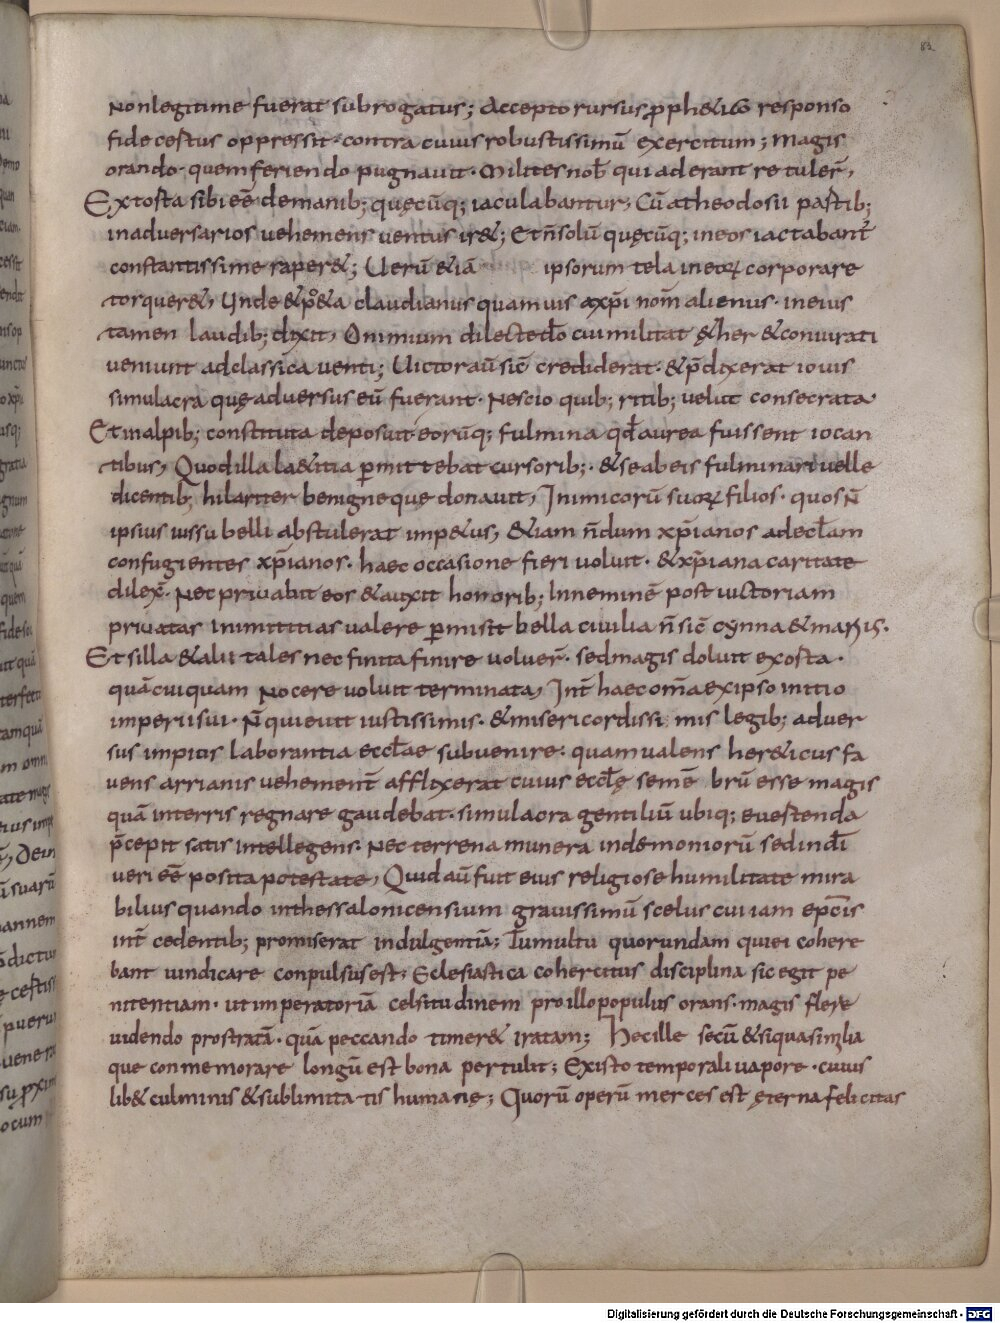 83
Non legitime fuerat subrogatus; Accepto rursus ꝓph&ico responso
fide certus oppressit · contra cuius robustissimū exercitum; magis
orando · quem feriendo pugnauit · Milites nob̄ qui aderant retuler̄,
Extosta sibi eē demanib; quęcūq; iaculabantur, Cū atheodosii partib;
inaduersarios uehemens uentus ir&; Et n̄ solū quęcūq; ineos iactabant̄
constantissime raper&; Uerū &iā ipsorum tela ineoꝝ corporare
torquer&, Unde &po&a claudianus quamuis axp̄i nom̄ alienus · ineius
tamen laudib; dixit, Onimium dilecte dō cui militat &her &coniurati
ueniunt adclassica uenti; Uictor aū sic̄ crediderat · &p̄dixerat iouis
simulacra quę aduersus eū fuerant · Nescio quib; ritib; uelut consecrata
Et inalpib; constituta deposuit eorūq; fulmina qd̄ aurea fuissent iocan
tibus, Quod illa l&itia ꝑmittebat cursorib; · &seabeis fulminari uelle
dicentib; hilariter benigneque donauit, Inimicorū suoꝝ filios · quos N̄
ipsius iussu belli abstulerat imp&us, &iam n̄dum xp̄ianos adeccl̄am
confugientes xp̄ianos · haec occasione fieri uoluit · &xp̄iana caritate
dilex̄ · Nec priuabit eos &auxit honorib; Inneminē post uictoriam
priuatas inimititias ualere ꝑmisit bella ciuilia n̄ sic̄ cynna &marius ·
Et silla &alii tales nec finita finire uoluer̄ · sedmagis doluit exosta ·
quā cuiquam Nocere uoluit terminata, Int̄ haec om̄a exipso initio
imperii sui · N̄ quieuit iustissimis · &misericordissi mis legib; aduer
sus impitis laborantia eccl̄ae subuenire · quam ualens her&icus fa
uens arrianis uehement̄ afflixerat cuius eccl̄ę semē brū esse magis
quā interris regnare gaudebat · simulaora gentiliū ubiq; euestenda
p̄cepit satis intellegens · Nec terrena munera indemoniorū sed indī
ueri eē posita potestate, Quid aū fuit eius religiose humilitate mira
bilius quando inthessalonicensium grauissimū scelus cui iam ep̄cis
int̄ cedentib; promiserat indulgentiā; Tumultu quorundam quiei cohere
bant uindicare conpulsus est, Eclesiastica cohercitus disciplina sic egit pe
nitentiam · ut imperatoriā celsitudinem pro illo populus orans · magis flere
uidendo prostratā · quā peccando timer& iratam; Hec ille secū &siqua similia
que conmemorare longū est bona pertulit; Existo temporali uapore · cuius
lib& culminis &sublimita tis humanę; Quorū operū merces est ęterna felicitas
Digitalisierung gefördert durch die Deutsche Forschungsgemeinschaft - DFG